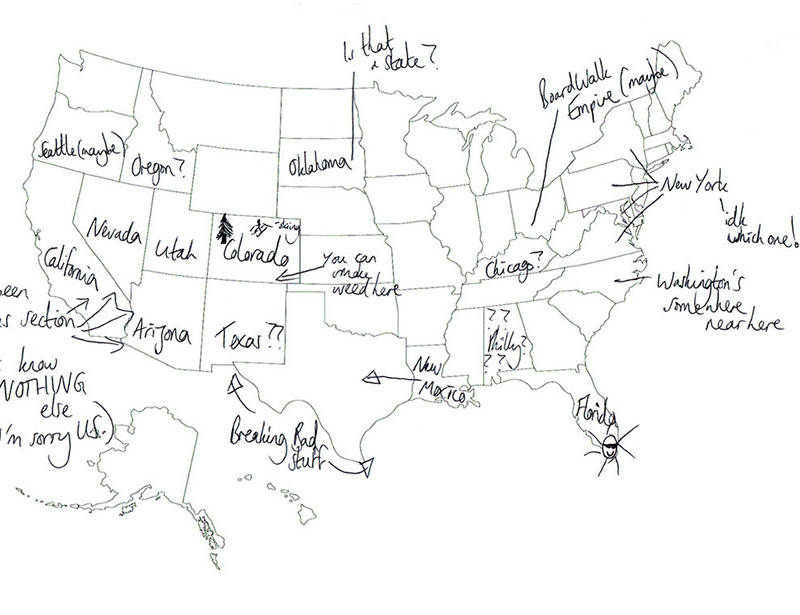 Is that
a state?
BoardWalk
Empire (maybe)
Seattle (maybe)
Oregon?
Oklahoma
New York
idk
which one!
Nevada
Utah
- skiing
Colorado
You can
smoke
weed here
California
Chicago?
Washington's
somewhere
near here
been
s section
Arizona
Texas??
??
Philly?
??
New
Mexico
know
NOTHING
else
I'm sorry U.S.)
Breaking Bad
stuff
Florida